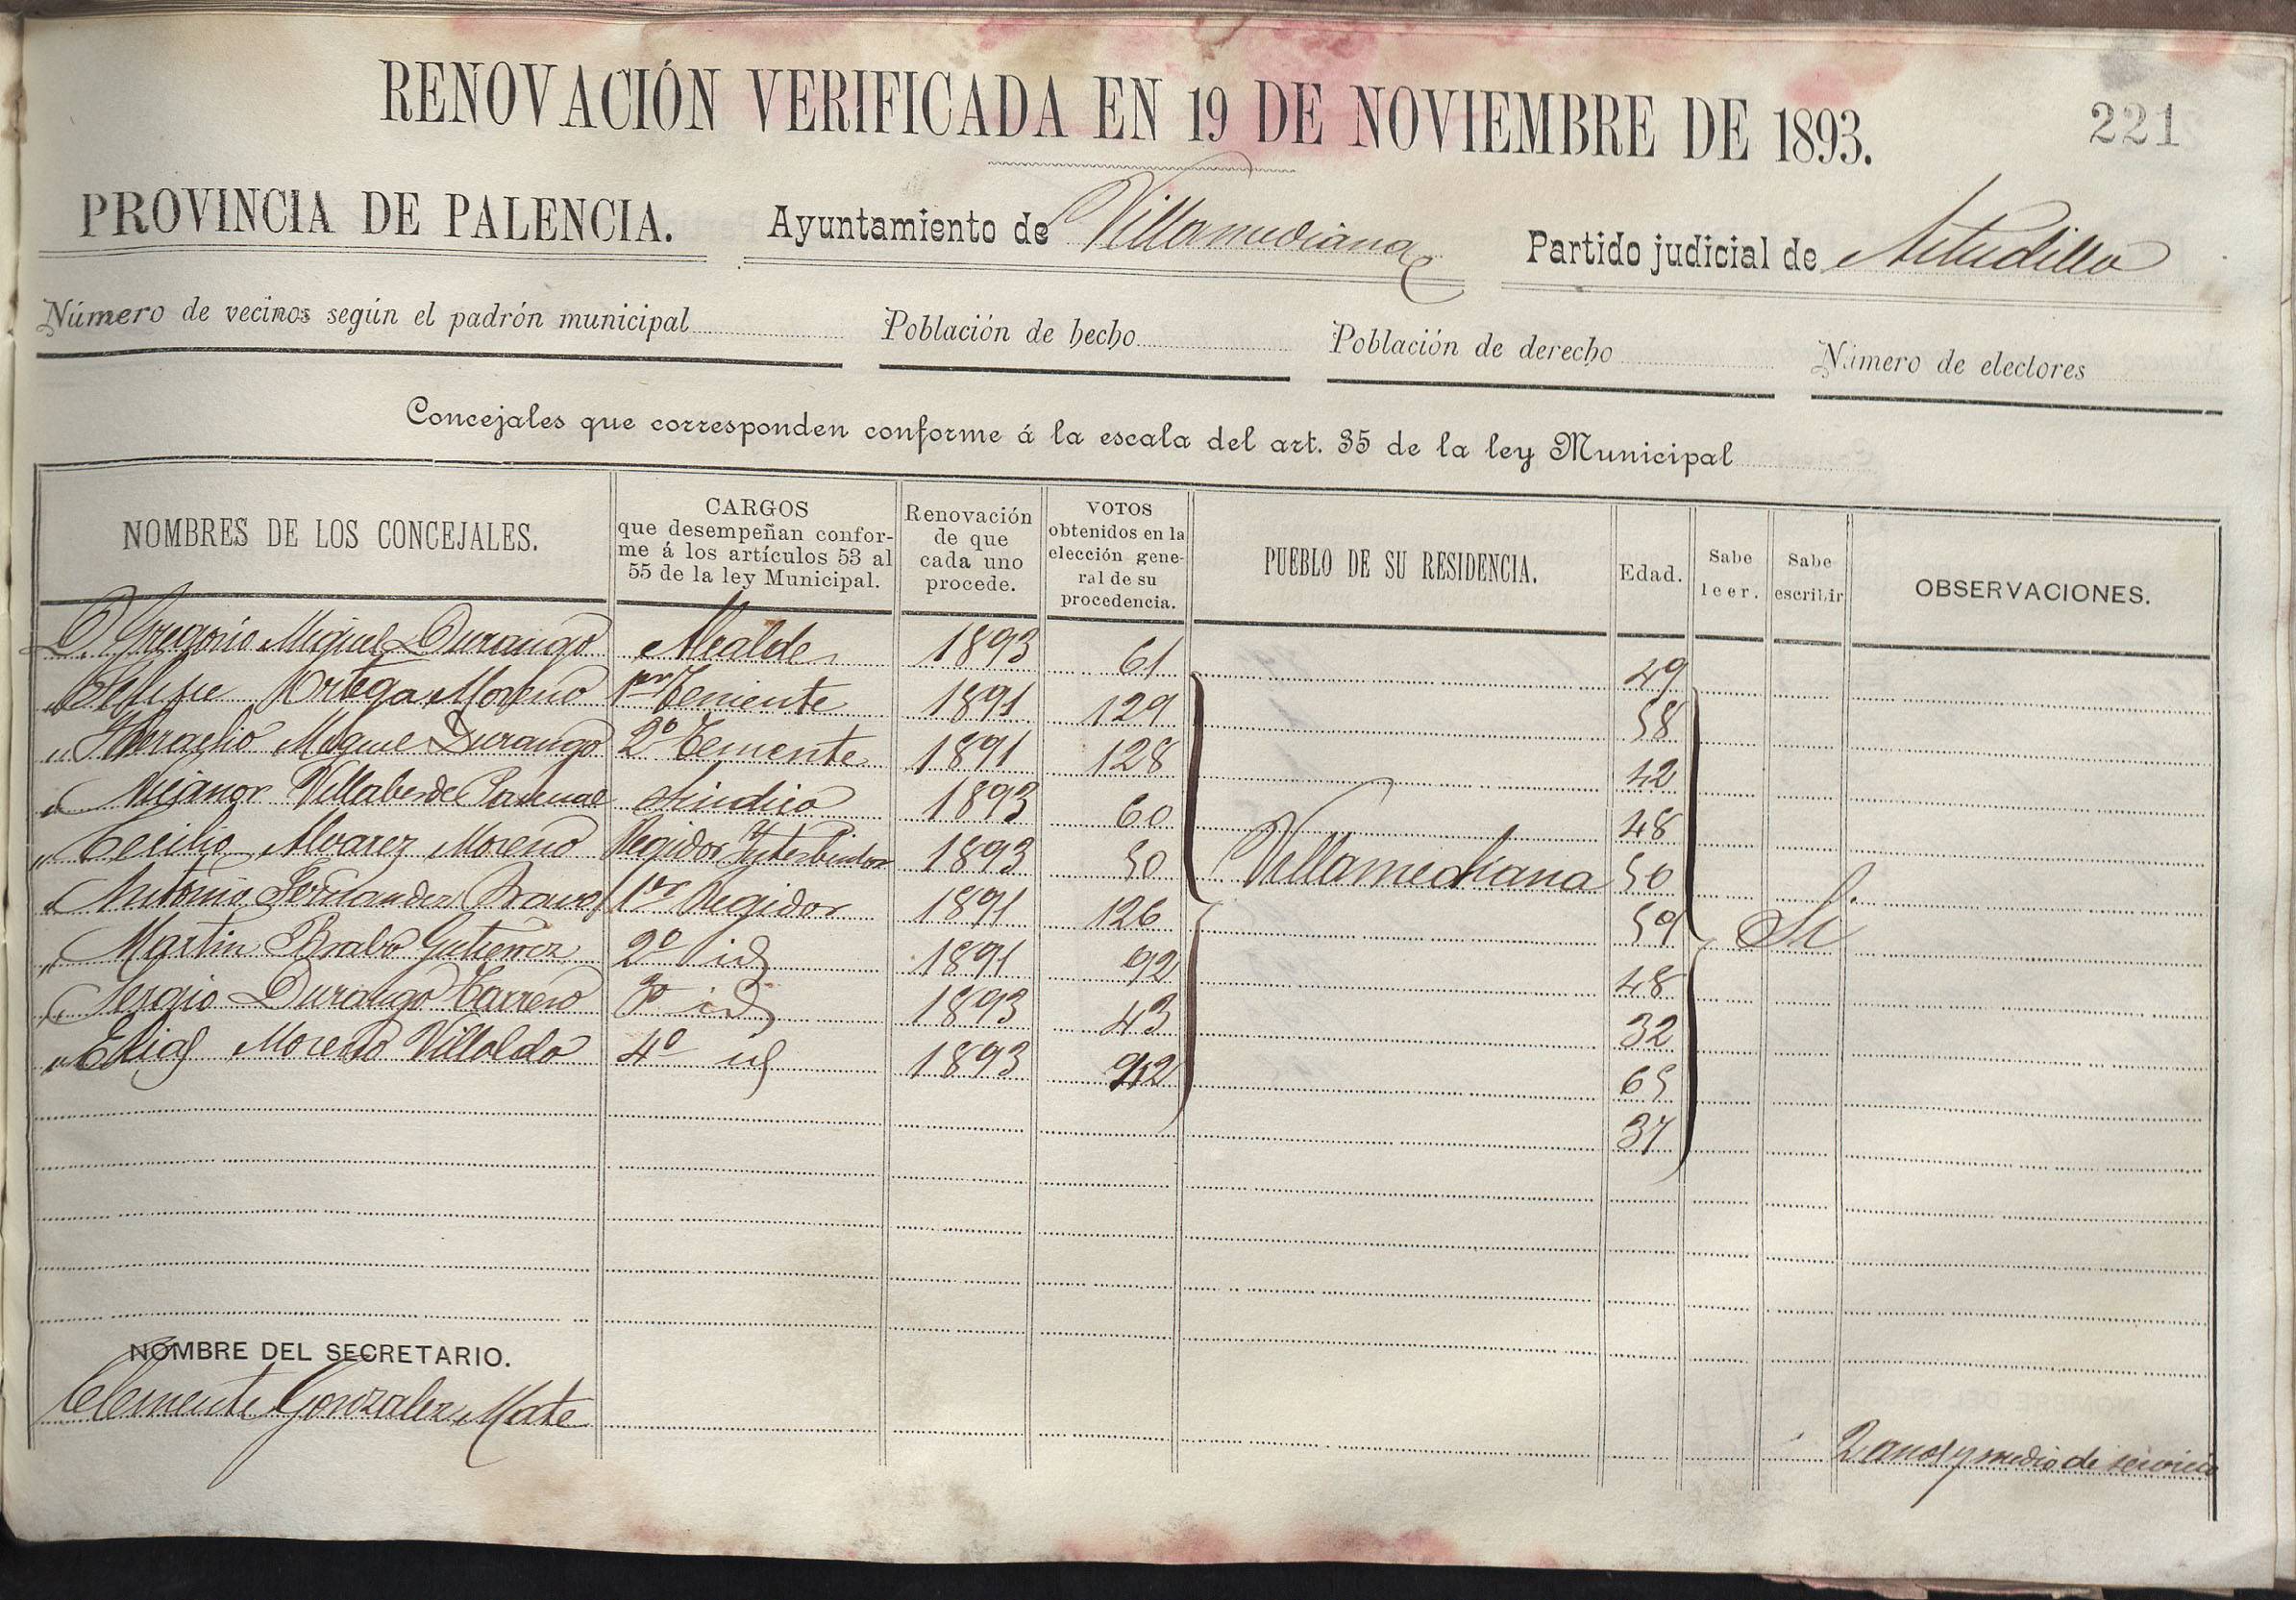 RENOVACIÓN VERIFICADA EN 19 DE NOVIEMBRE DE 1893.
221
PROVINCIA DE PALENCIA. Ayuntamiento de Villamediana Partido judicial de Astudillo
Número de vecinos según el padrón municipal Población de hecho Población de derecho Número de electores
Concejales que corresponden conforme á la escala del art. 35 de la ley Municipal
NOMBRES DE LOS CONCEJALES.
CARGOS
que desempeñan confor-
me á los artículos 53 al
55 de la ley Municipal.
Renovación
de que
cada uno
procede.
VOTOS
obtenidos en la
elección gene-
ral de su
procedencia.
PUEBLO DE SU RESIDENCIA.
Edad.
Sabe
leer.
Sabe
escribir
OBSERVACIONES.
D. Gregorio Miguel Durango Alcalde 1893 61 49
" Felipe Ortega Moreno 1er Teniente 1891 129 58
" Heraclio Miguel Durango 2º Teniente 1891 128 42
" Nicanor Villaberde Pascual Sindico 1893 60 48
" Cecilio Alvarez Moreno Regidor Interbentor 1893 50 Villamediana 50
" Antonio Fernandez Bravo 1er Regidor 1891 126 59 Si
" Martin Brabo Gutierrez 2º id 1891 92 48
" Sergio Durango Carrero 3º id 1893 43 32
" Elias Moreno Villoldo 4º id 1893 65
37
NOMBRE DEL SECRETARIO.
Clemente Gonzalez Mate
2 años y medio de servicio